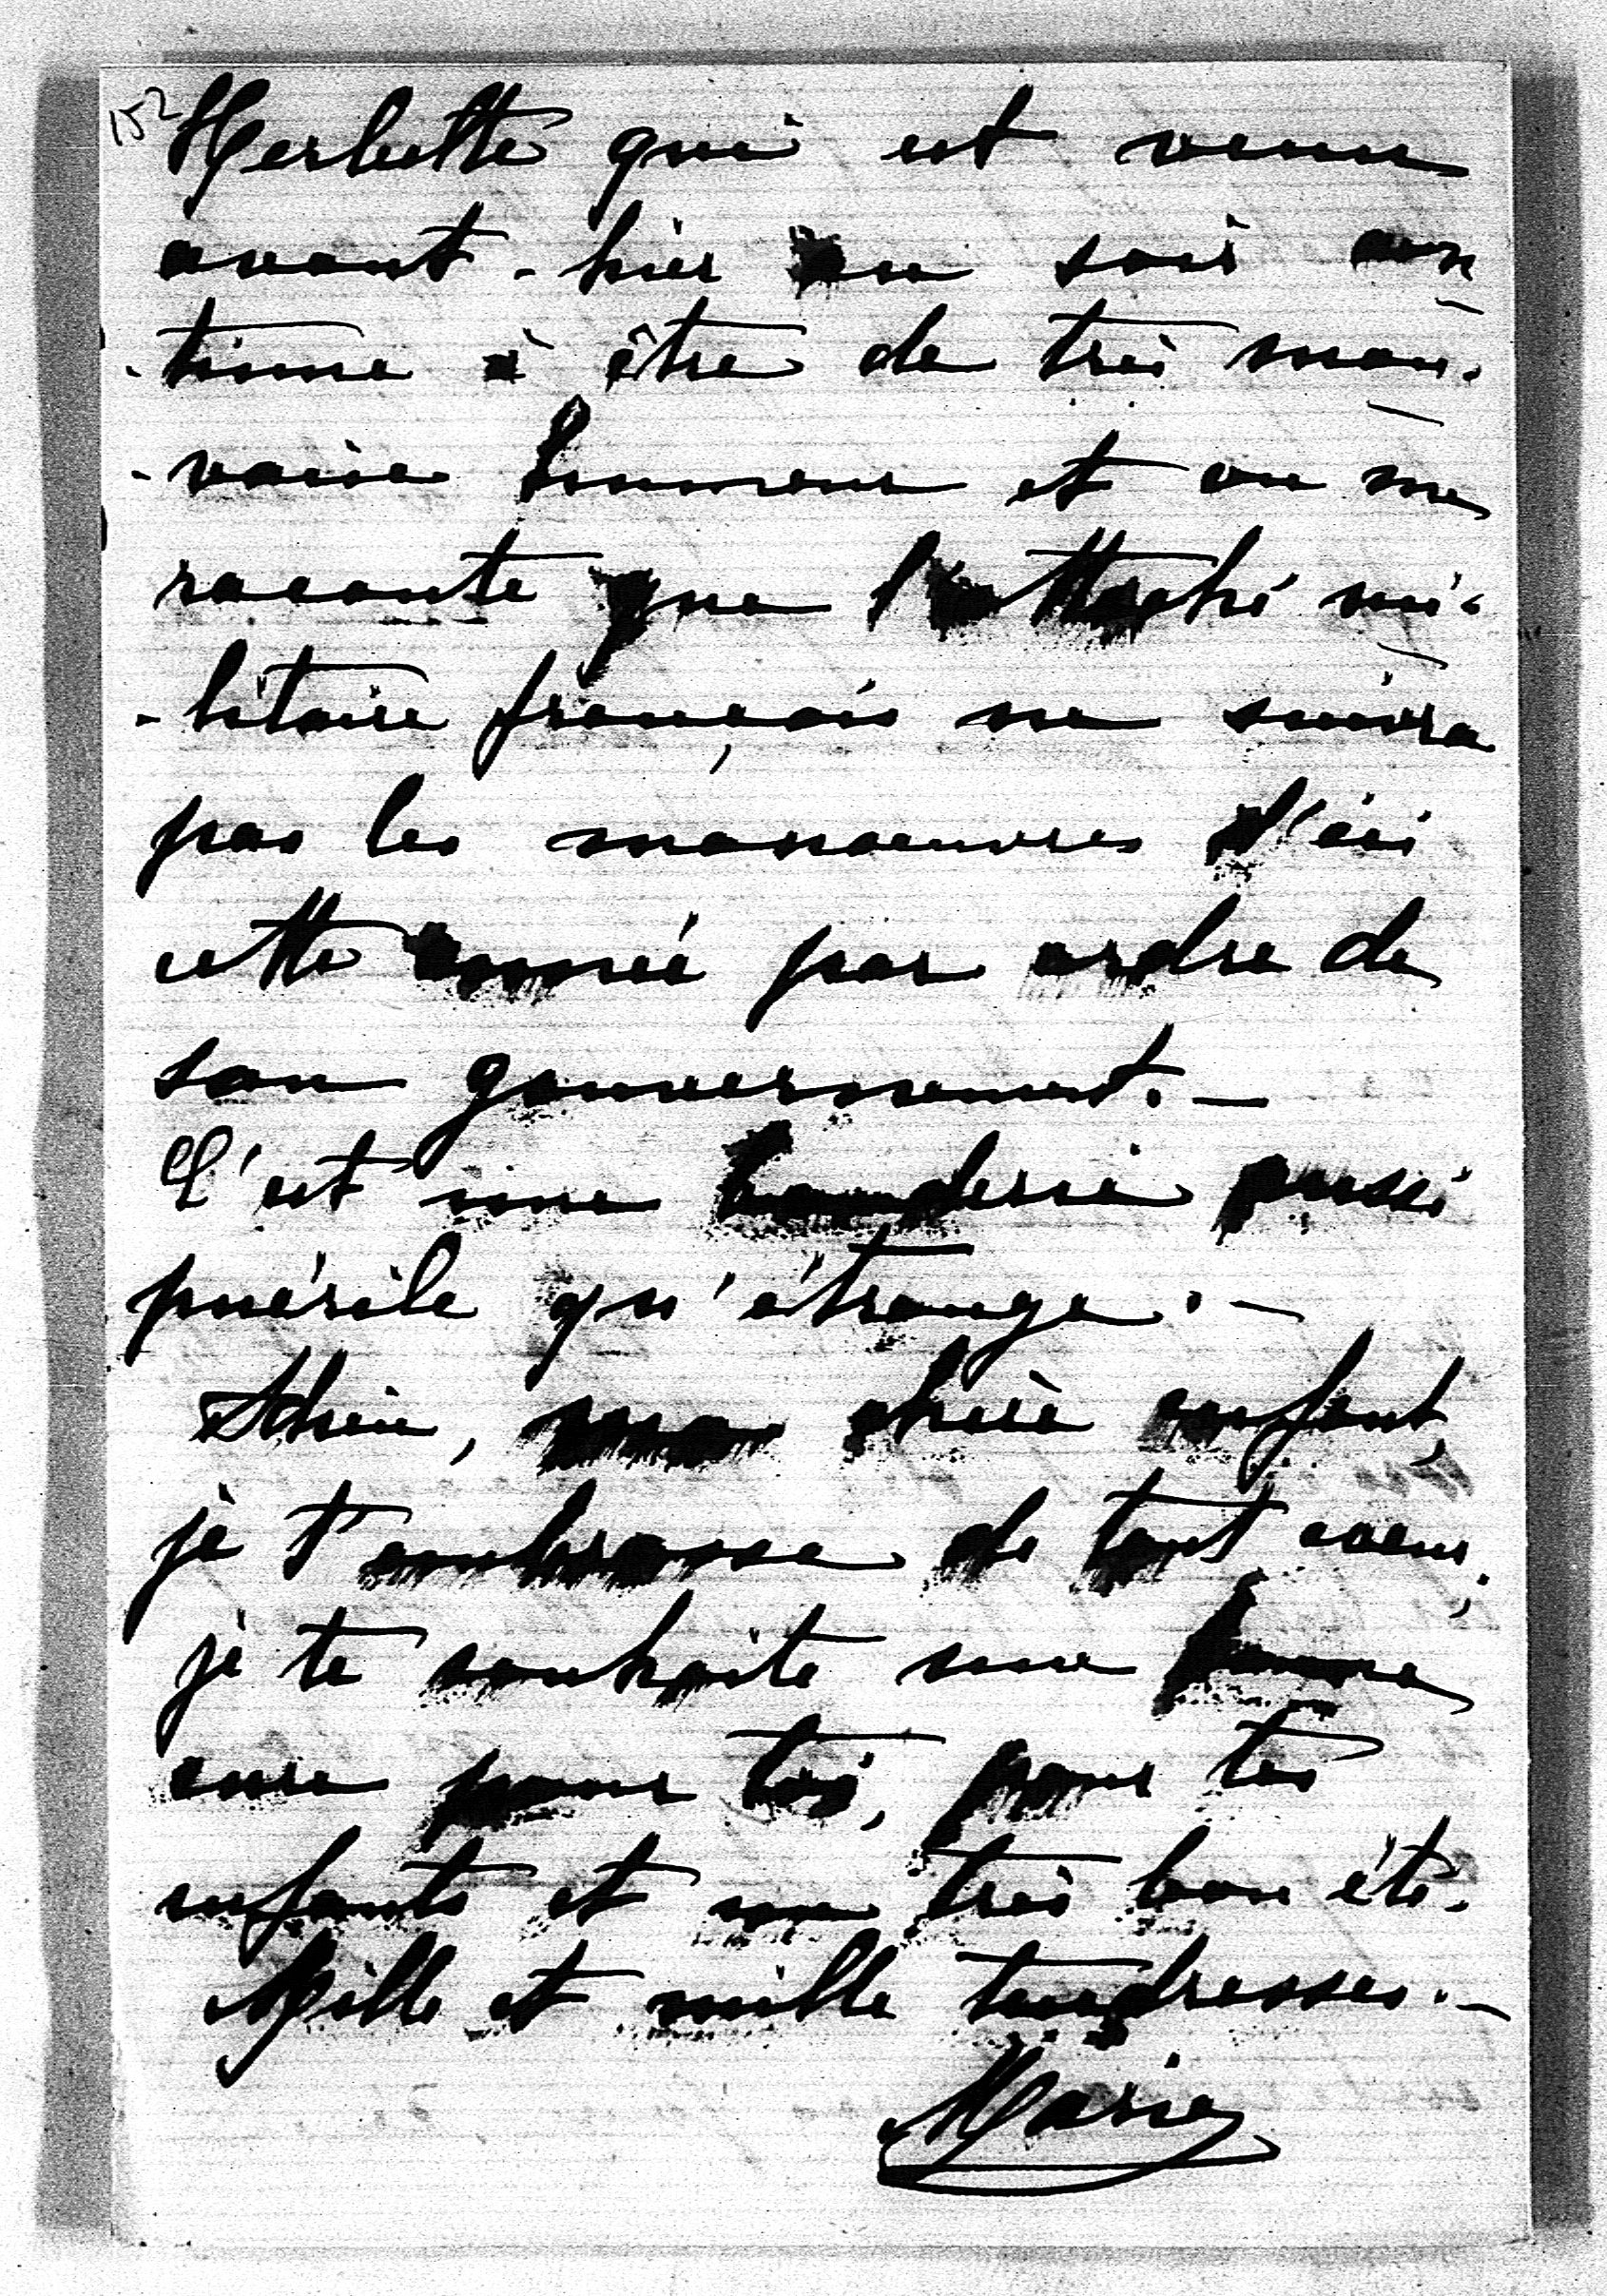 152
Herbette qui est venu
avant-hier au soir con
-tinue à être de très mau-
-vaise humeur et on me
raconte que l'attaché mi-
-litaire français ne suivra
pas les manoeuvres d'ici
cette année par ordre de
son gouvernement. —
C'est une bouderie aussi
puérile qu'étrange. —
Adieu, ma chère enfant,
je t'embrasse de tout coeur,
je te souhaite une bonne
cure pour toi, pour tes
enfants et un très bon été.
Mille et mille tendresses. —
Marie